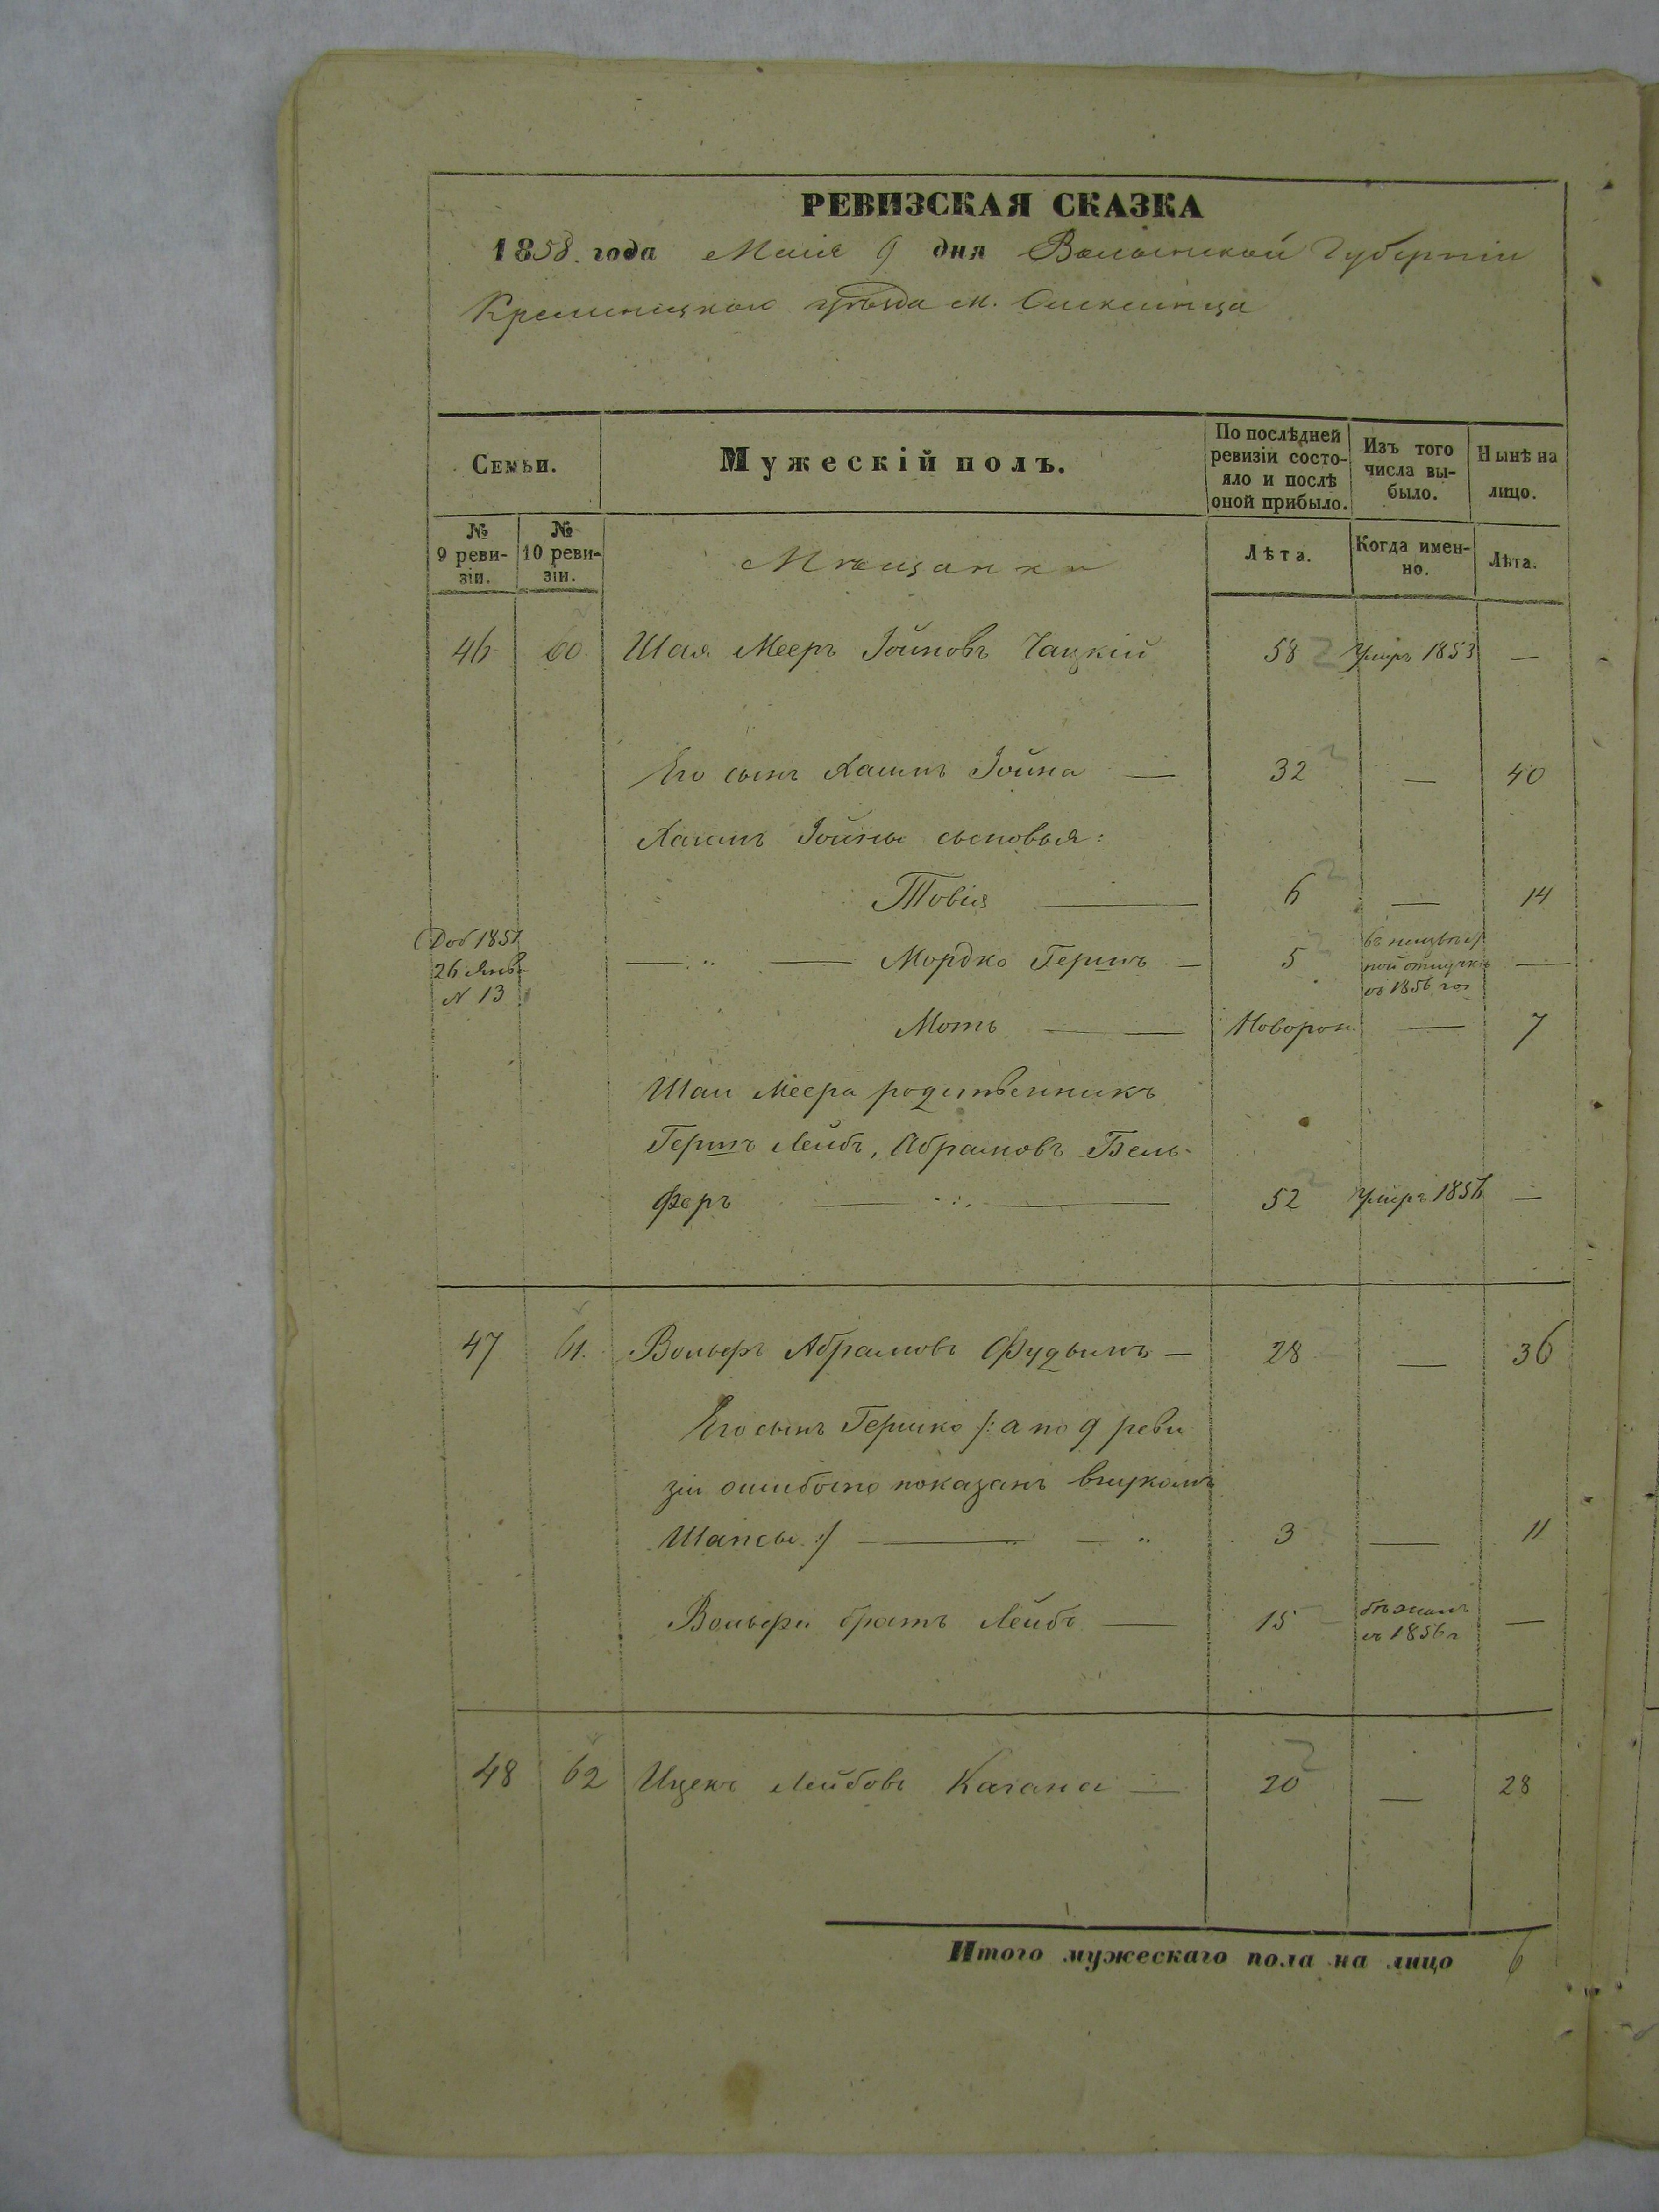 РЕВИЗСКАЯ СКАЗКА
1858. года Маія 9 дня Волынской Губерніи
Кременецкаго уѣзда м.
Семьи.
Мужескій полъ.
По послѣдней ревизіи состо-
яло и послѣ оной прибыло.
Изъ того числа вы-
было.
Нынѣ на лицо.
№ 9 реви-
зіи.
№ 10 реви-
зіи.
Мѣщане
Лѣта.
Когда имен-
но.
Лѣта.
46 60 Шая Мееръ Іойновъ Чацкій 58 умеръ 1853 —
Его сынъ Хаимъ Іойна — 32 — 40
Хаимъ Іойны сыновья:
Товія — 6 — 14
Доб 1857
26 Янв
N 13
— „ — Мордко Гершъ — 5 —
въ
ной отлучкѣ
съ 1856 го
Моть — Новорож. — 7
Шаи Меера родственникъ
Гершъ Лейбъ, Абрамовъ Бель-
феръ — 52 умеръ 1856 —
47 61. Вольфъ Абрамовъ Фудымъ — 28 — 36
Его сынъ Гершко /: а по 9 реви
зіи ошибочно показанъ внукомъ
Шапсы :/ — 3 — 11
Вольфа братъ Лейбъ — 15 бѣжалъ
съ 1856 г —
48 62 Ицекъ Лейбовъ Кагана — 20 — 28
Итого мужескаго пола на лицо 6